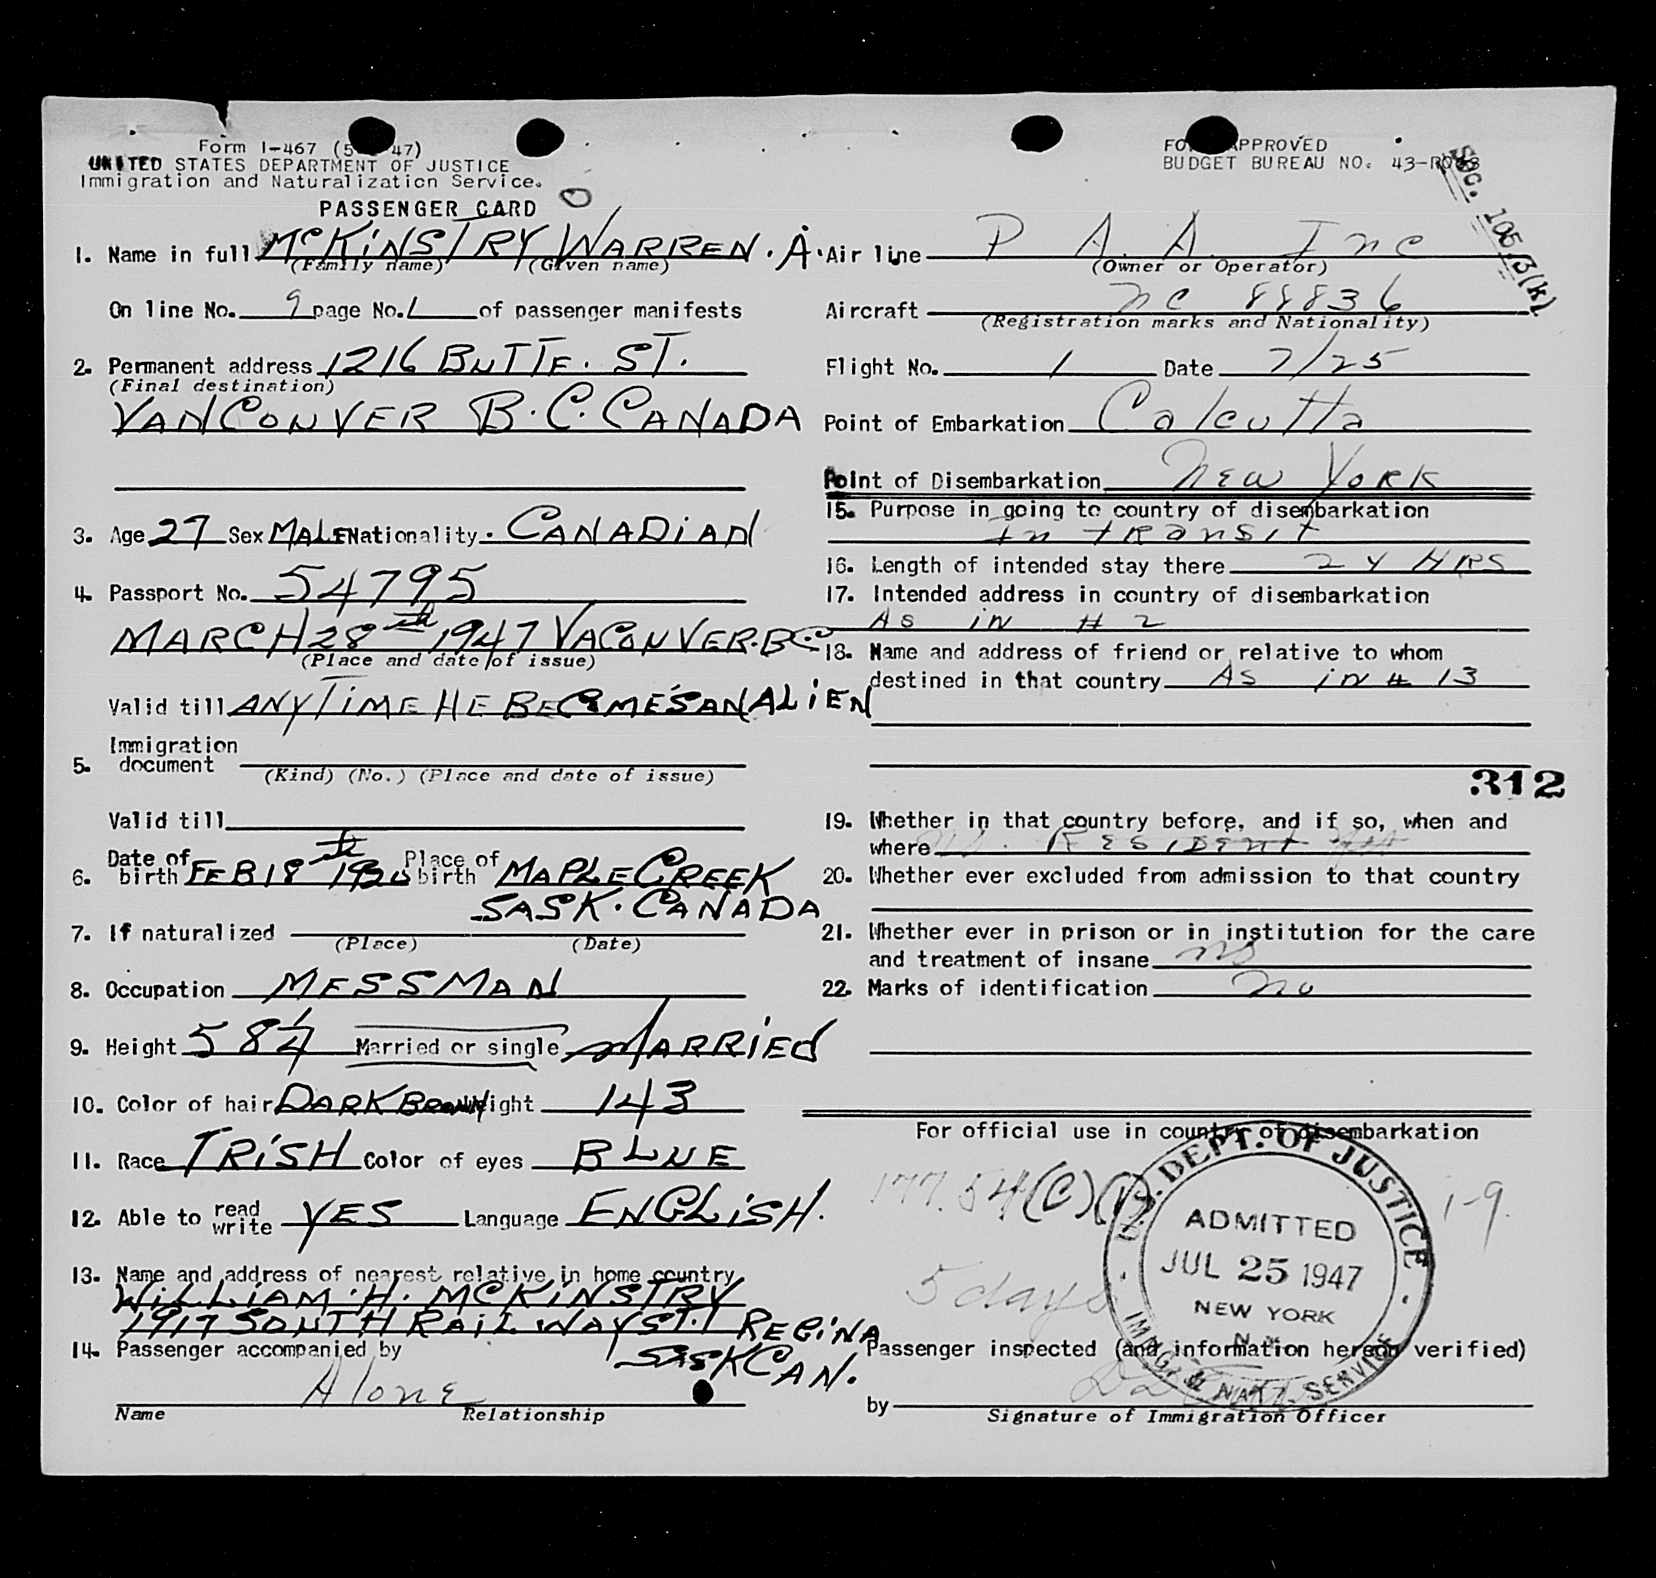 Form I-467 (5 47)
UNITED STATES DEPARTMENT OF JUSTICE
Immigration and Naturalization Service.
PASSENGER CARD
1. Name in full McKINSTRY WARREN. A.
(Family name) (Given name)
On line No. 9 page No. 1 of passenger manifests
2. Permanent address 1216 BUTTE. ST.
(Final destination)
VANCONVER B.C. CANADA
3. Age 27 Sex MALE Nationality. CANADIAN
4. Passport No. 54795
MARCH 28th 1947 VACONVER. BC
(Place and date of issue)
Valid till ANYTIME HE BECOMES AN ALIEN
5. Immigration document
(Kind) (No.) (Place and date of issue)
Valid till
6. Date of birth FEB 18th 1920 Place of birth MAPLE CREEK
SASK. CANADA
7. If naturalized
(Place) (Date)
8. Occupation MESSMAN
9. Height 5 8 Married or single MARRIED
10. Color of hair DARK BROWN Weight 143
11. Race IRISH Color of eyes BLUE
12. Able to read write YES Language ENGLISH.
13. Name and address of nearest relative in home country
WILLIAM. H. MCKINSTRY
1917 SOUTH RAILWAY ST. REGINA
SASK CAN.
14. Passenger accompanied by
Alone
Name Relationship
FO APPROVED
BUDGET BUREAU NO. 43-R
Sec. 105/3(k)
Air line P A A Inc
(Owner or Operator)
Aircraft NC 88836
(Registration marks and Nationality)
Flight No. 1 Date 7/25
Point of Embarkation Calcutta
Point of Disembarkation New York
15. Purpose in going to country of disembarkation
In transit
16. Length of intended stay there 24 HRS
17. Intended address in country of disembarkation
As in # 2
18. Name and address of friend or relative to whom
destined in that country As in # 13
312
19. Whether in that country before, and if so, when and
where Resident
20. Whether ever excluded from admission to that country
21. Whether ever in prison or in institution for the care
and treatment of insane no
22. Marks of identification no
For official use in country of disembarkation
177.54(C)(1) 1-9.
5 days
U.S. DEPT. OF JUSTICE
ADMITTED
JUL 25 1947
NEW YORK
N.Y.
IMMIG. & NAT'Z. SERVICE
Passenger inspected (and information hereon verified)
by
Signature of Immigration Officer